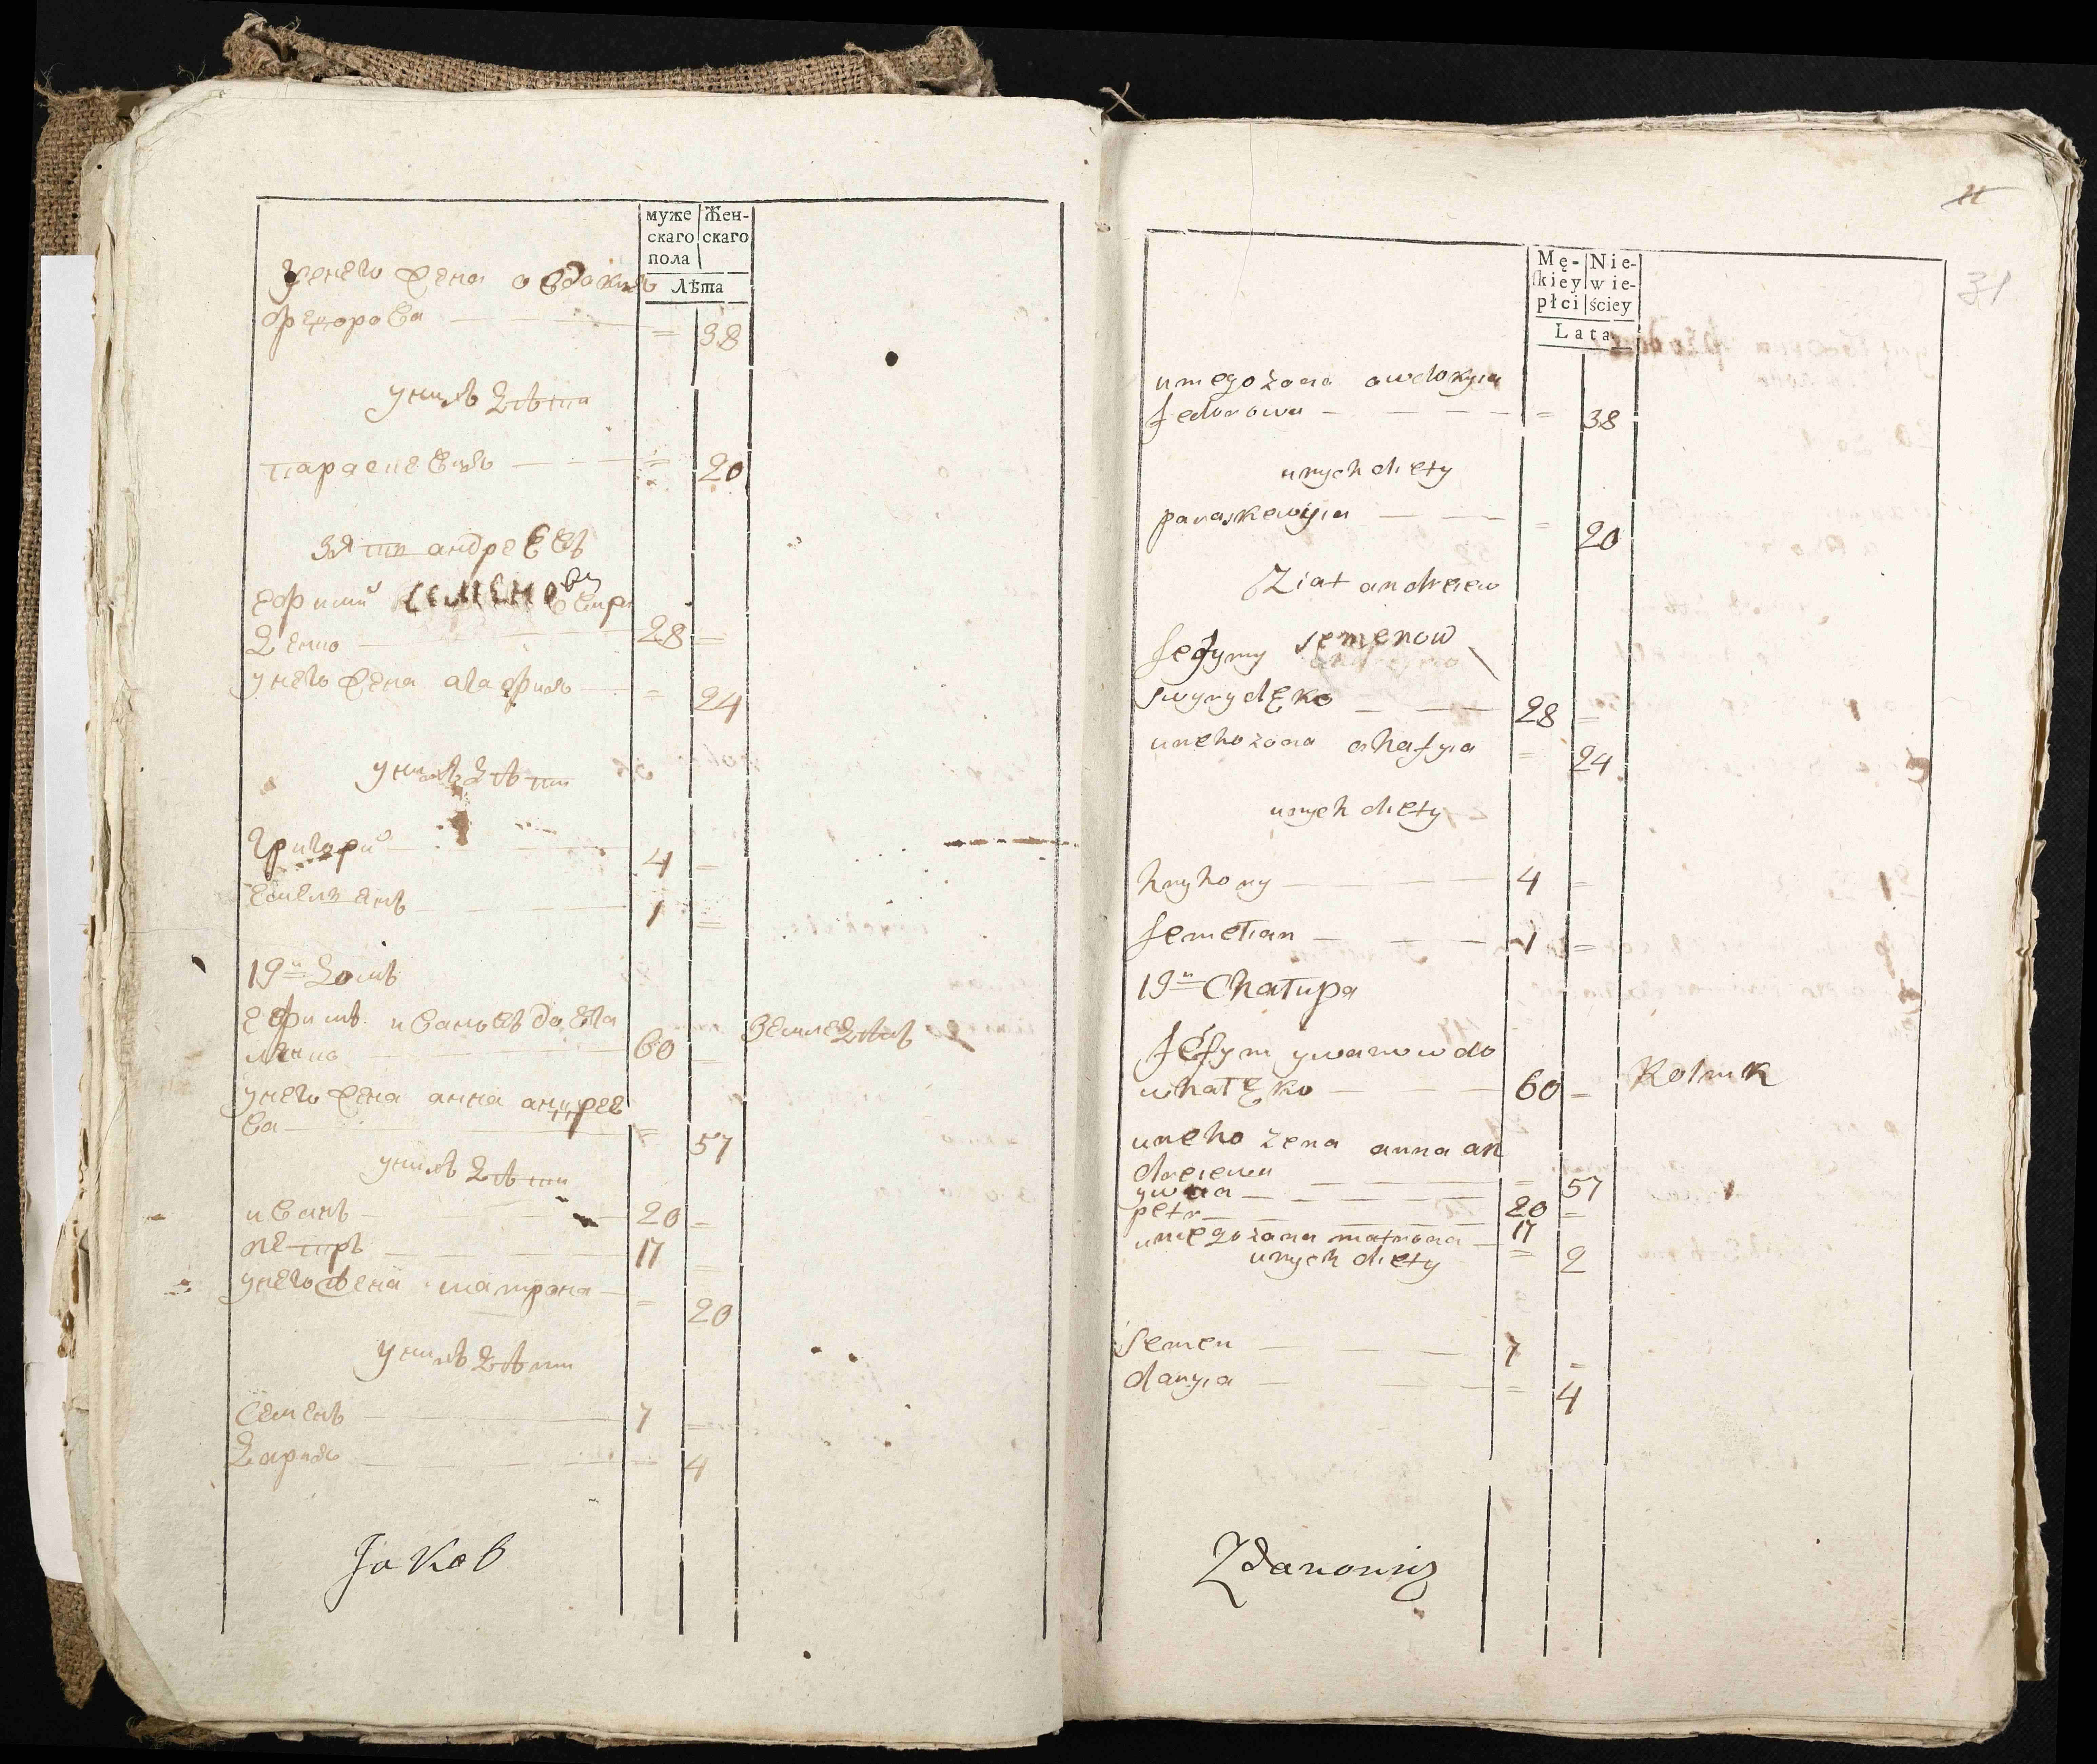 муже
скаго
пола
Жен-
скаго
Лѣта
унего жена овдокия
федорова 38
унихъ дѣти
параскевия 20
зять андреевъ
ефимий семеновъ свири
денко 28
унего жена агафия 24
унихъ дѣти
григорий 4
емелиянъ 1
19й домъ
ефимъ ивановъ довга
ленко 60 земледѣлъ
унего жена анна андрее
ва 57
унихъ дѣти
иванъ 20
петръ 17
унего жена матрона 20
унихъ дѣти
семенъ 7
дария 4
Jakob
31
Mę-
skiey
płci
Nie-
wie-
ściey
Lata
uniego żona awdokyia
fedorowa 38
unych diety
paraskewyia 20
Ziat andreiew
Jefymy semenow
swyrydęko 28
uneho zona ahafyia 24
unych diety
hryhory 4
Jemelian 1
19n Chałupa
Jefym ywanow do
whalęko 60 Rolnik
uneho zena anna an
dreiewa 57
ywan 20
petr 17
uniego żona matrona 2
unych diety
Semen 7
daryia 4
Zdanowicz